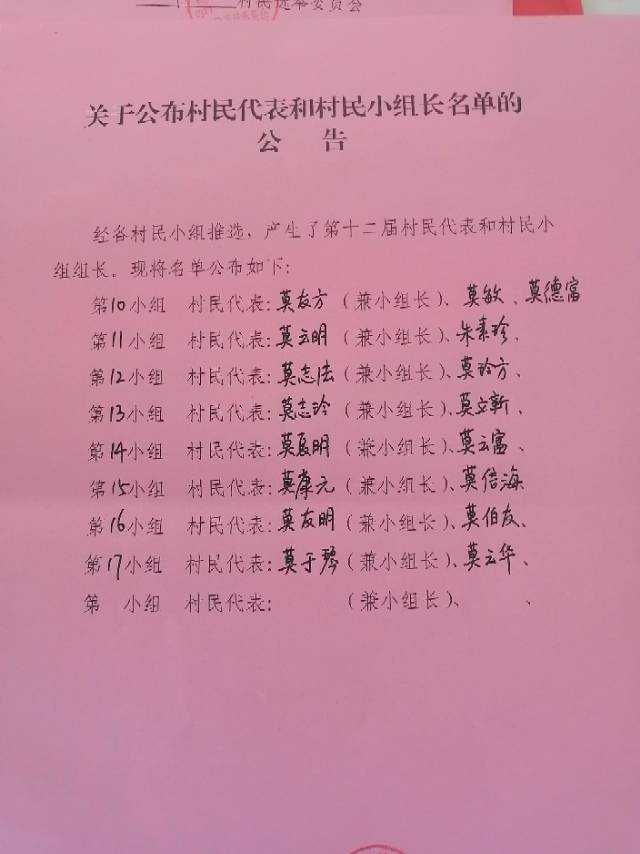 村民选举委员会
关于公布村民代表和村民小组长名单的
公 告
经各村民小组推选、产生了第十二届村民代表和村民小
组组长。现将名单公布如下:
第10小组 村民代表:莫友方(兼小组长)、莫敏、莫德富
第11小组 村民代表:莫云明(兼小组长)、朱素珍、
第12小组 村民代表:莫志法(兼小组长)、莫玲方、
第13小组 村民代表:莫志玲(兼小组长)、莫文新、
第14小组 村民代表:莫夏明(兼小组长)、莫云富、
第15小组 村民代表:莫掌元(兼小组长)、莫信海
第16小组 村民代表:莫友明(兼小组长)、莫伯友、
第17小组 村民代表:莫于琴(兼小组长)、莫云华、
第 小组 村民代表: (兼小组长)、 、